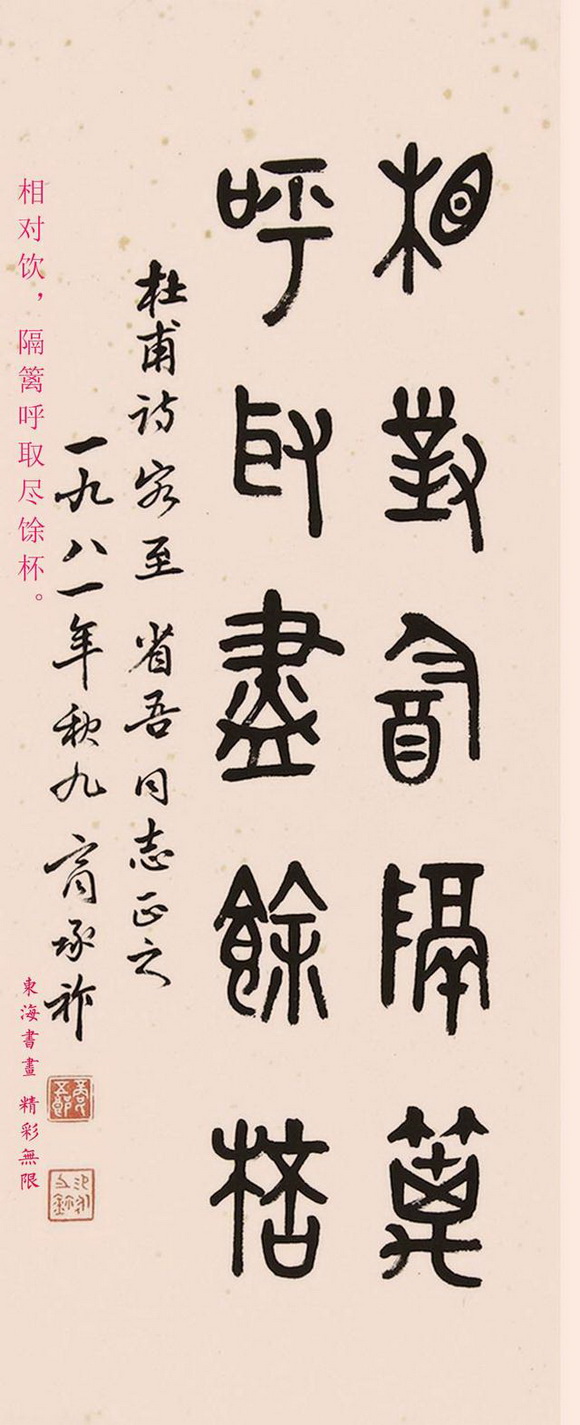 相對飲隔篱
呼取盡餘桮
杜甫詩客至 省吾同志正之
一九八一年秋九 商承祚
相对饮，隔篱呼取尽馀杯。
東海書畫 精彩無限